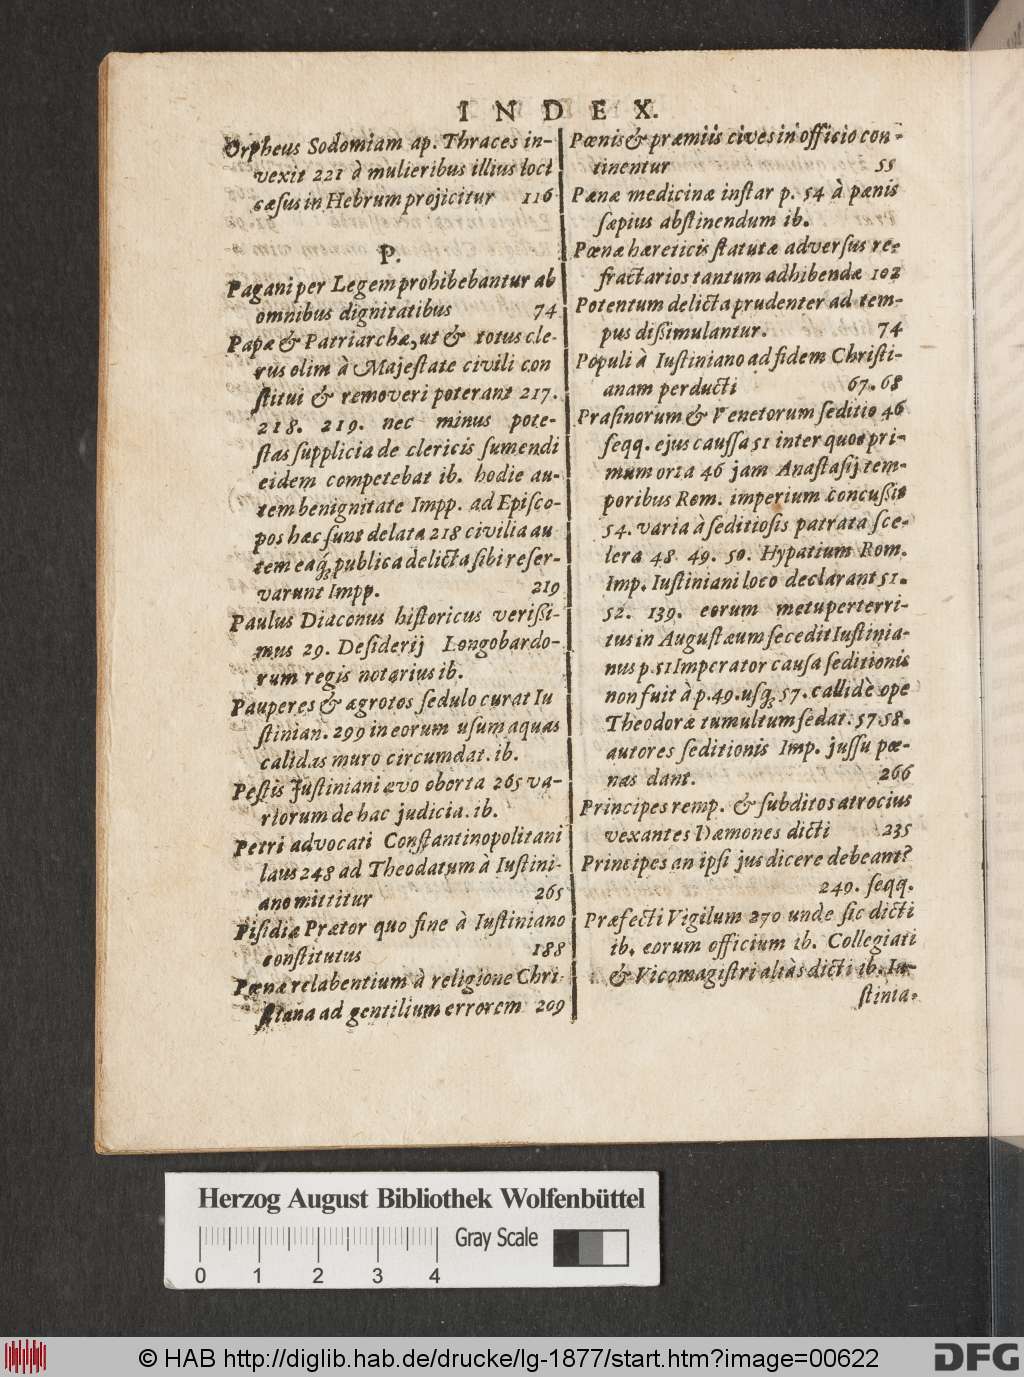 INDEX.
Orpheus Sodomiam ap. Thraces in-
vexit 221 à mulieribus illius loci
cæsus in Hebrum projicitur 116
P.
Pagani per Legem prohibebantur ab
omnibus dignitatibus 74
Papæ & Patriarchæ, ut & totus cle-
rus olim à Majestate civili con
stitui & removeri poterant 217.
218. 219. nec minus pote-
stas supplicia de clericis sumendi
eidem competebat ib. hodie au-
tem benignitate Impp. ad Episco-
pos hæc sunt delata 218 civilia au
tem eaq; publica delicta sibi reser-
varunt Impp. 219
Paulus Diaconus historicus verissi-
mus 29. Desiderij Longobardo-
rum regis notarius ib.
Pauperes & ægrotos sedulo curat Iu
stinian. 299 in eorum usum aquas
calidas muro circumdat. ib.
Pestis Justiniani ævo oborta 265 va-
riorum de hac judicia. ib.
Petri advocati Constantinopolitani
laus 248 ad Theodatum à Iustini-
ano mittitur 265
Pisidiæ Prætor quo fine à Iustiniano
constitutus 188
Pœna relabentium à religione Chri-
stiana ad gentilium errorem 209
Pœnis & præmiis cives in officio con-
tinentur 55
Pœnæ medicinæ instar p. 54 à pœnis
sæpius abstinendum ib.
Pœnæ hæreticis statutæ adversus re-
fractarios tantum adhibendæ 102
Potentum delicta prudenter ad tem-
pus dissimulantur. 74
Populi à Iustiniano ad fidem Christi-
anam perducti 67. 68
Prasinorum & Venetorum seditio 46
seqq. ejus caussa 51 inter quos pri-
mum orta 46 jam Anastasij tem-
poribus Rom. imperium concussit
54. varia à seditiosis patrata sce-
lera 48 49. 50. Hypatium Rom.
Imp. Iustiniani loco declarant 51.
52. 139. eorum metu perterri-
tus in Augustæum secedit Iustinia-
nus p. 51 Imperator causa seditionis
non fuit à p. 49. usq; 57. callidè ope
Theodoræ tumultum sedat. 57. 58.
autores seditionis Imp. jussu pœ-
nas dant. 266
Principes remp. & subditos atrocius
vexantes Dæmones dicti 235
Principes an ipsi jus dicere debeant?
249. seqq.
Præfecti Vigilum 270 unde sic dicti
ib. eorum officium ib. Collegiati
& Vicomagistri aliàs dicti ib. Iu-
stinia-
Herzog August Bibliothek Wolfenbüttel
Gray Scale
0 1 2 3 4
© HAB http://diglib.hab.de/drucke/lg-1877/start.htm?image=00622
DFG